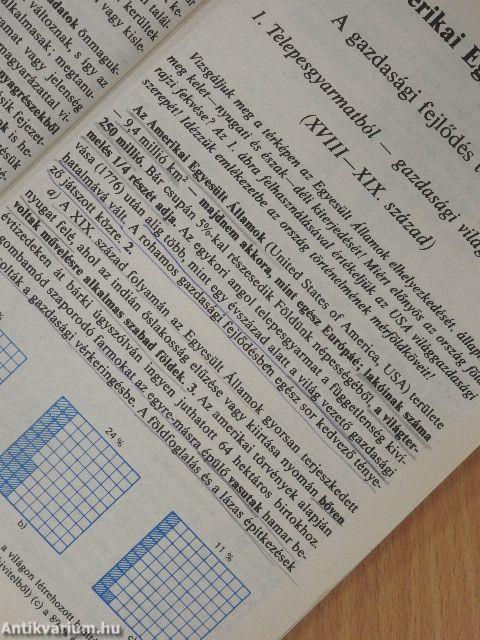 adatok önmaguk-
változnak, s így az
megtanu-
vagy jelenség
magyarázattal vi-
nyagrészekből
erikai Eg
A gazdasági fejlődés
1. Telepesgyarmatból — gazdasági világ
(XVIII—XIX. század)
Vizsgáljuk meg a térképen az Egyesült Államok elhelyezkedését, állapí
meg kelet—nyugati és észak—déli kiterjedését! Miért előnyös az ország föld
rajzi fekvése? Az 1. ábra felhasználásával értékeljük az USA világgazdasági
szerepét! Idézzük emlékezetbe az ország történelmének mérföldköveit!
Az Amerikai Egyesült Államok (United States of America, USA) területe
— 9,4 millió km² — majdnem akkora, mint egész Európáé, lakóinak száma
250 millió. Bár csupán 5%-kal részesedik Földünk népességéből, a világter-
melés 1/4 részét adja. Az egykori angol telepesgyarmat a függetlenség kiví-
vása (1776) után alig több, mint egy évszázad alatt a világ vezető gazdasági
hatalmává vált. A rohamos gazdasági fejlődésben egész sor kedvező ténye-
ző játszott közre. 2
a) A XIX. század folyamán az Egyesült Államok gyorsan terjeszkedett
nyugat felé, ahol az indián őslakosság elűzése vagy kiirtása nyomán bőven
voltak művelésre alkalmas szabad földek. 3. Az amerikai törvények alapján
évtizedeken át bárki úgyszólván ingyen juthatott 64 hektáros birtokhoz
gombamód szaporodó farmokat az egyre-másra épülő vasutak hamar be-
a gazdasági vérkeringésbe. A földfoglalás és a lázas építkezések
24 %
b)
11 %
a világon létrehozott
(c) a
Antikvárium.hu